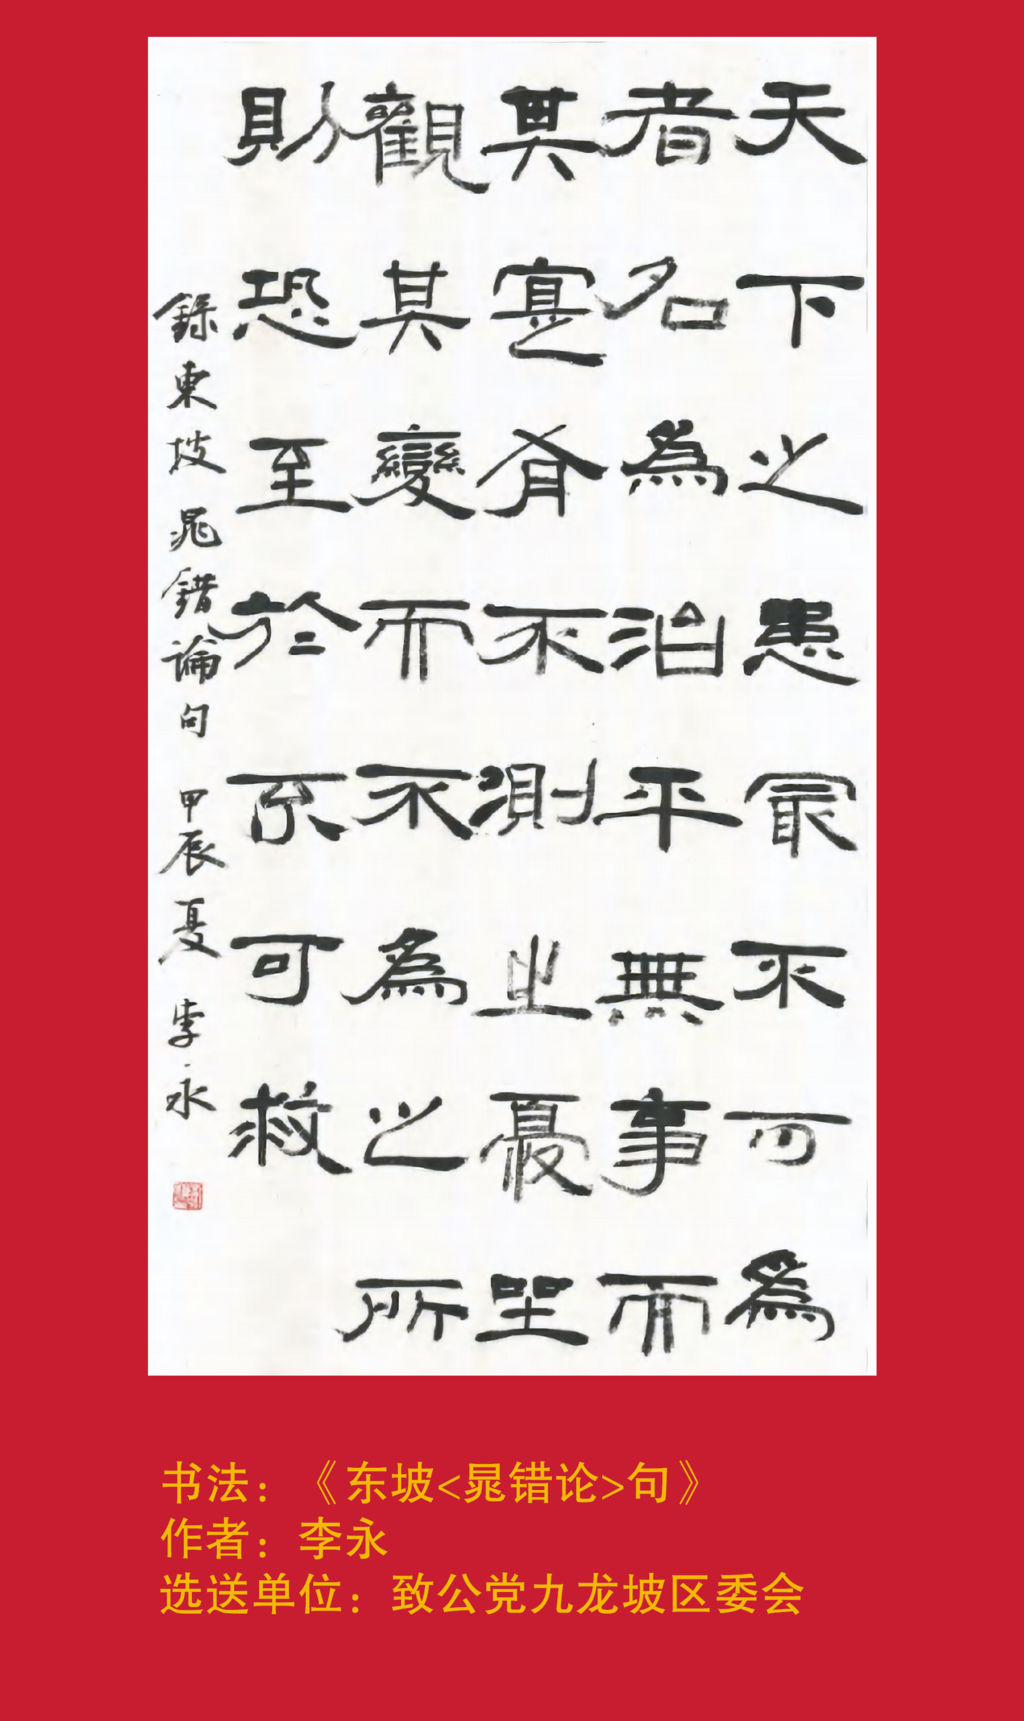 天下之患冣不可為
者名為治平無事而
其寔有不測之憂坐
觀其變而不為之所
則恐至於不可救
錄東坡晁錯論句 甲辰夏 李永
书法：《东坡<晁错论>句》
作者：李永
选送单位：致公党九龙坡区委会